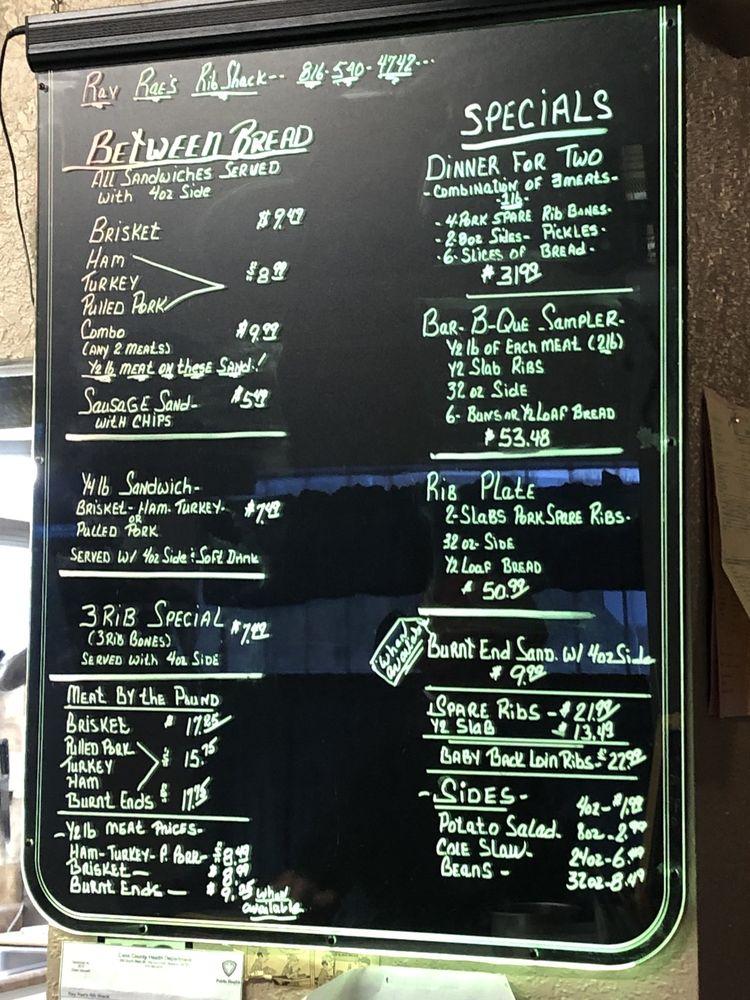 Ray Rae's Rib Shack-- 816-590-4742...
BETWEEN BREAD
ALL SANDWICHES SERVED
with 4oz Side
BRISKET $9.49
HAM
TURKEY $8.99
PULLED PORK
COMBO $9.99
(ANY 2 MEATS)
1/2 lb MEAT ON these SAND.!
SAUSAGE SAND- $5.49
with CHIPS
1/4 lb SANDWICH-
BRISKET-HAM-TURKEY- $7.49
OR
PULLED PORK
SERVED W/ 4oz Side & Soft Drink
3 RIB SPECIAL $7.49
(3 RIB BONES)
SERVED with 4oz SIDE
MEAT BY the POUND
BRISKET $
PULLED PORK
TURKEY $ 15.
HAM
BURNT ENDS $
-1/2 lb MEAT PRICES-
HAM-TURKEY-P. PORK- $8.49
BRISKET- $8.99
BURNT ENDS - $9. when
available
SPECIALS
DINNER FOR TWO
-COMBINATION OF 3 MEATS-
-1lb-
-4-PORK SPARE RIB BONES-
-2-8oz SIDES- PICKLES-
-6-SLICES OF BREAD-
$31.99
BAR-B-QUE SAMPLER-
1/2 lb OF EACH MEAT (2lb)
1/2 SLAB RIBS
32 oz SIDE
6-BUNS OR 1/2 LOAF BREAD
$53.48
RIB PLATE
2-SLABS PORK SPARE RIBS-
32 oz-SIDE
1/2 LOAF BREAD
$50.99
when
available
BURNT END SAND. W/ 4oz Side
$9.99
SPARE RIBS - $21.99
1/2 SLAB $13.49
BABY BACK LOIN RIBS-$22.99
-SIDES- 4oz-$1.99
POTATO SALAD- 8oz-2.99
COLE SLAW- 24oz-6.99
BEANS- 32oz-8.49
Cass County Health Department